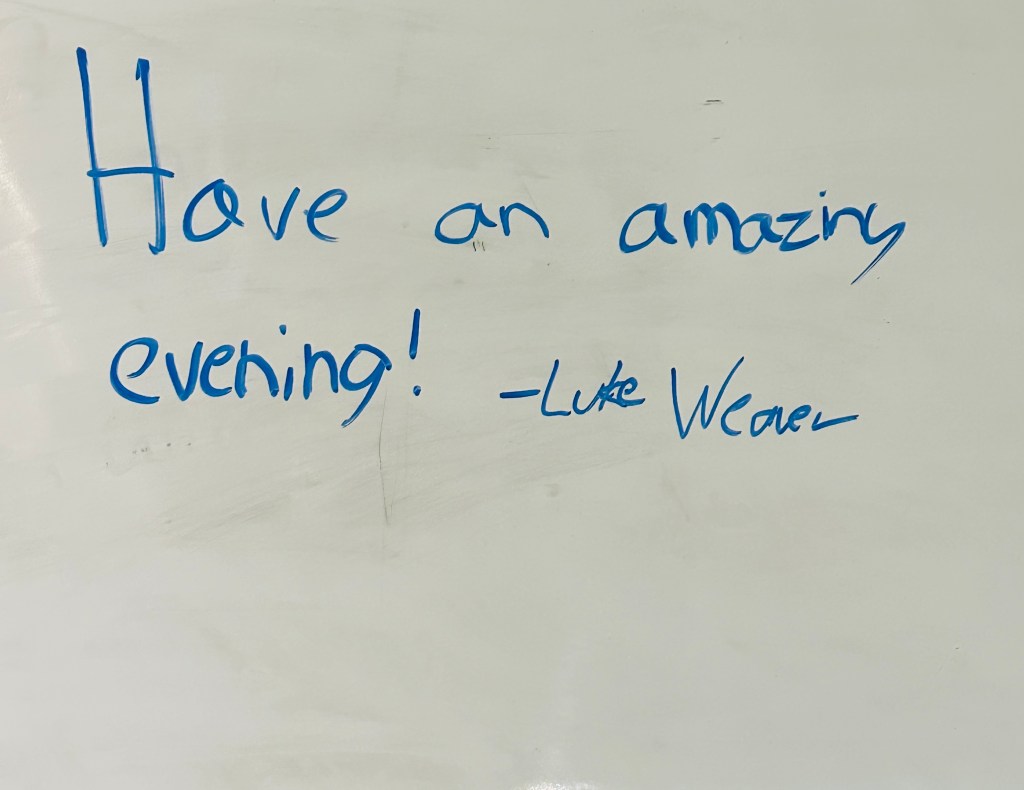 Have an amazing
evening! -Luke Weaver